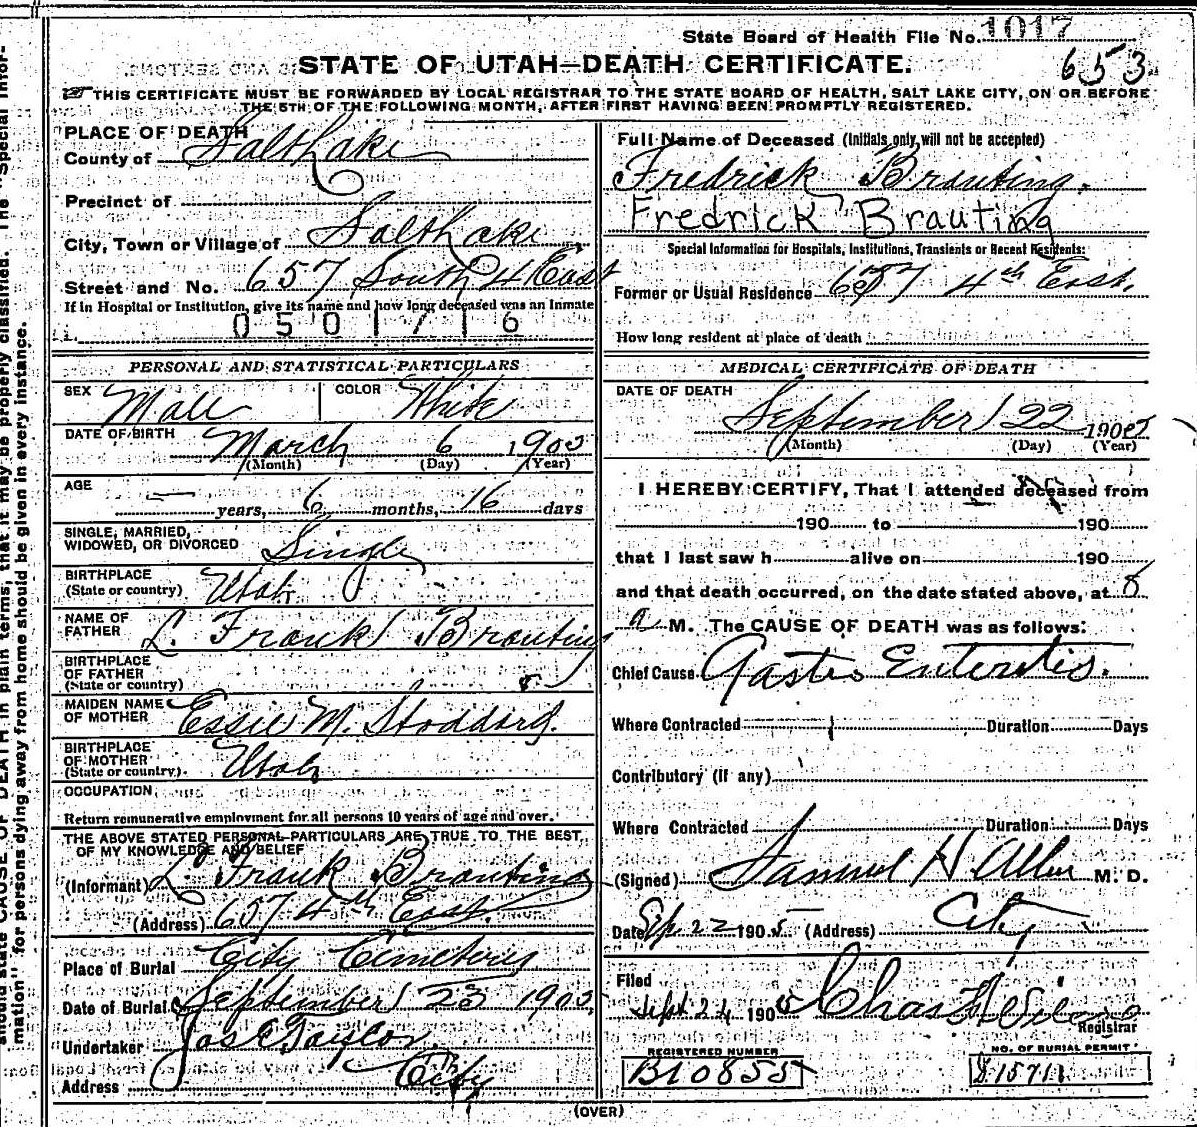 State Board of Health File No. 1017
653
STATE OF UTAH—DEATH CERTIFICATE.
THIS CERTIFICATE MUST BE FORWARDED BY LOCAL REGISTRAR TO THE STATE BOARD OF HEALTH, SALT LAKE CITY, ON OR BEFORE
THE 5TH OF THE FOLLOWING MONTH, AFTER FIRST HAVING BEEN PROMPTLY REGISTERED.
PLACE OF DEATH
County of Salt Lake
Precinct of
City, Town or Village of Salt Lake
Street and No. 657 South 4 East
If in Hospital or Institution, give its name and how long deceased was an Inmate
0501716
Full Name of Deceased (Initials only will not be accepted)
Fredrick Brauting.
Fredrick Brauting
Special Information for Hospitals, Institutions, Transients or Recent Residents:
Former or Usual Residence 657 4th East.
How long resident at place of death
PERSONAL AND STATISTICAL PARTICULARS
SEX Male COLOR White
DATE OF BIRTH March 6 1905
(Month) (Day) (Year)
AGE — years, 6 months, 16 days
SINGLE, MARRIED,
WIDOWED, OR DIVORCED Single
BIRTHPLACE
(State or country) Utah
NAME OF
FATHER L. Frank Brauting
BIRTHPLACE
OF FATHER
(State or country)
MAIDEN NAME
OF MOTHER Essie M. Stoddard.
BIRTHPLACE
OF MOTHER
(State or country). Utah
OCCUPATION
Return remunerative employment for all persons 10 years of age and over.
THE ABOVE STATED PERSONAL PARTICULARS ARE TRUE TO THE BEST
OF MY KNOWLEDGE AND BELIEF
(Informant) L. Frank Brauting
(Address) 657 4th East.
Place of Burial City Cemetery
Date of Burial September 23 1905
Undertaker Jos E Taylor
Address City
MEDICAL CERTIFICATE OF DEATH
DATE OF DEATH
September 22 1905
(Month) (Day) (Year)
I HEREBY CERTIFY, That I attended deceased from
190 to 190
that I last saw h alive on 190
and that death occurred, on the date stated above, at 8
a M. The CAUSE OF DEATH was as follows:
Chief Cause Gastro Enteritis.
Where Contracted Duration Days
Contributory (if any)
Where Contracted Duration Days
(Signed) Samuel H Allen M. D.
Date Sep 22 1905 (Address) City
Filed
Sept 24 1905 Chas
Registrar
REGISTERED NUMBER
B10855
NO. OF BURIAL PERMIT
(OVER)
should state CAUSE OF DEATH in plain terms, that it may be properly classified. The "Special Infor-
mation" for persons dying away from home should be given in every instance.